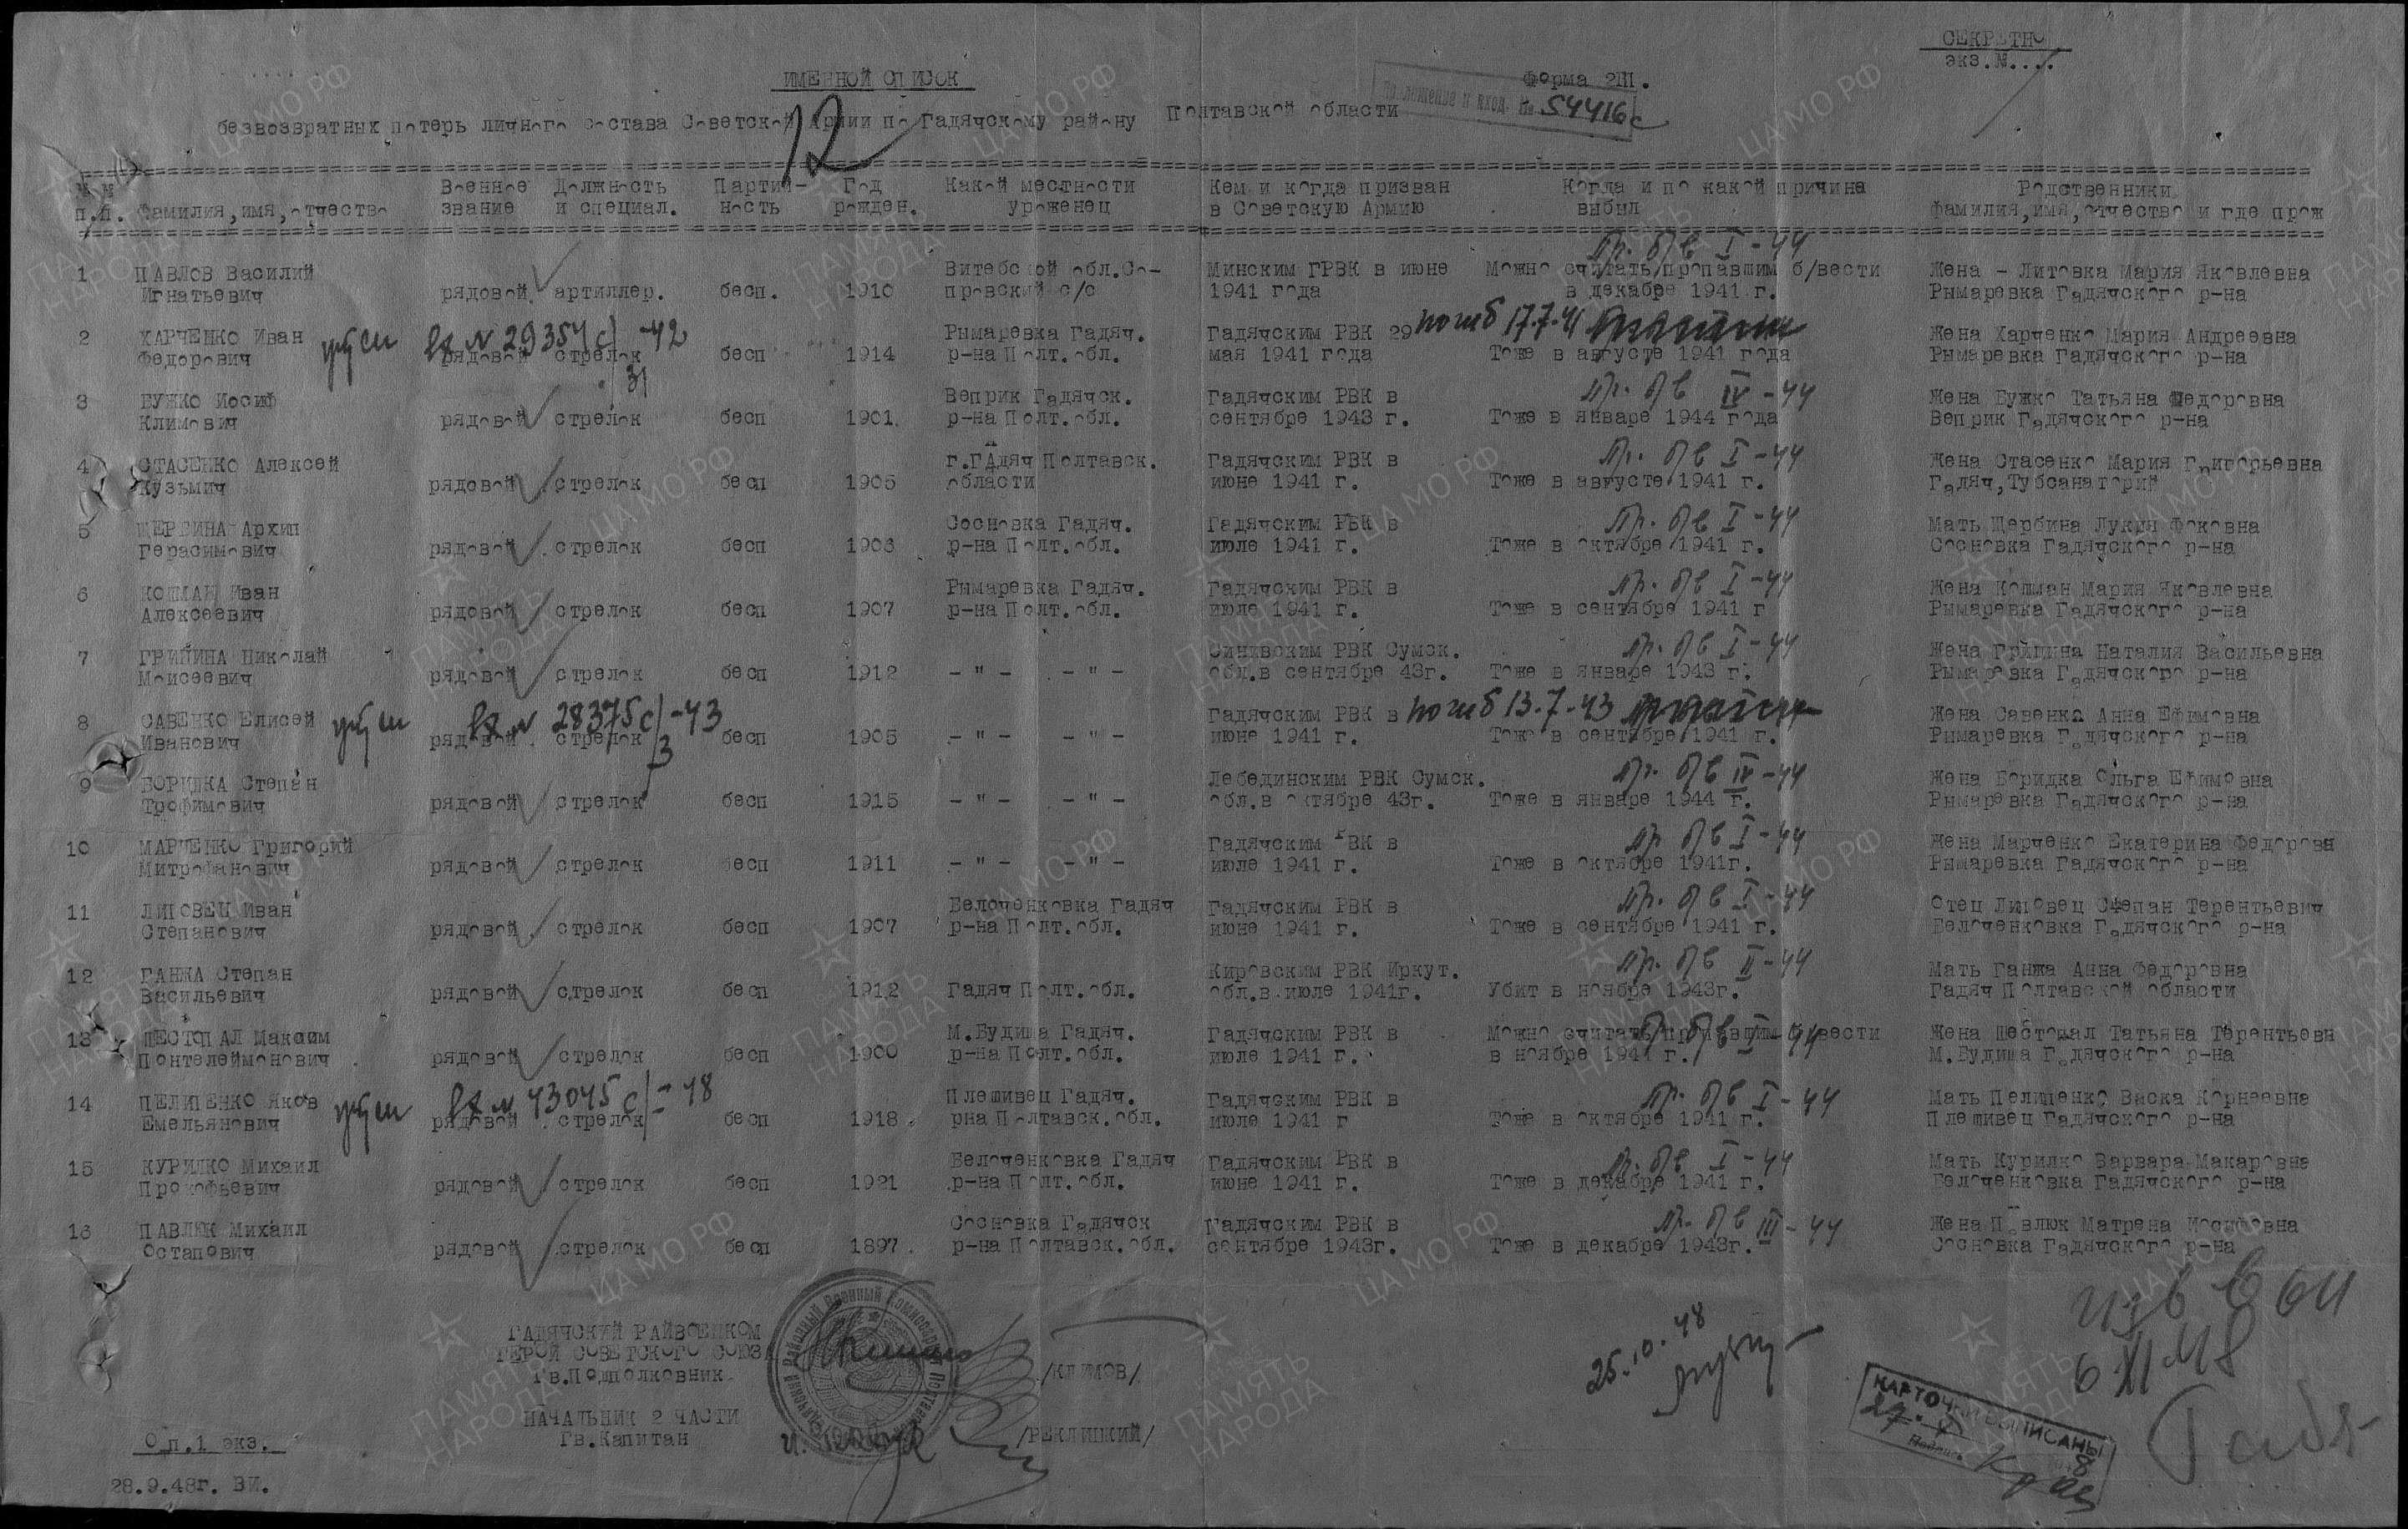 СЕКРЕТНО
экз.N....
ИМЕННОЙ СПИСОК
Форма 2Ш.
12
вход. № 54416с
безвозвратных потерь личного состава Советской Армии по Гадячскому району Полтавской области
№ №
п.п. Фамилия, имя, отчество Военное звание Должность и специал. Партий-ность Год рожден. Какой местности уроженец Кем и когда призван в Советскую Армию Когда и по какой причина выбыл Родственники фамилия, имя, отчество и где прож
Пр. б/в I-44
1 ПАВЛОВ Василий Витебской обл.Со- Минским ГРВК в июне Можно считать пропавшим б/вести Жена - Литовка Мария Яковлевна
Игнатьевич рядовой артиллер. бесп. 1910 провский с/с 1941 года в декабре 1941 г. Рымаревка Гадячского р-на
погиб 17.7.41
2 ХАРЧЕНКО Иван вх N 29354с -42 Рымаревка Гадяч. Гадячским РВК 29 Жена Харченко Мария Андреевна
Федорович рядовой стрелок бесп 1914 р-на Полт.обл. мая 1941 года Тоже в августе 1941 года Рымаревка Гадячского р-на
31
Пр. б/в IV-44
3 БУЖКО Иосиф Веприк Гадячск. Гадячским РВК в Жена Бужко Татьяна Федоровна
Климович рядовой стрелок бесп 1901. р-на Полт.обл. сентябре 1943 г. Тоже в январе 1944 года Веприк Гадячского р-на
Пр. б/в I-44
4 СТАСЕНКО Алексей г.ГАдяч Полтавск. Гадячским РВК в Жена Стасенко Мария Григорьевна
Кузьмич рядовой стрелок бесп 1905 области июне 1941 г. Тоже в августе 1941 г. Гадяч, Тубсанаторий
Пр. б/в I-44
5 ЩЕРБИНА Архип Сосновка Гадяч. Гадячским РВК в Мать Щербина Лукия Фоковна
Герасимович рядовой стрелок бесп 1903 р-на Полт.обл. июле 1941 г. Тоже в октябре 1941 г. Сосновка Гадячского р-на
Пр. б/в I-44
6 КОШМАН Иван Рымаревка Гадяч. Гадячским РВК в Жена Кошман Мария Яковлевна
Алексеевич рядовой стрелок бесп 1907 р-на Полт.обл. июле 1941 г. Тоже в сентябре 1941 г Рымаревка Гадячского р-на
Пр. б/в I-44
7 ГРИПИНА Николай Синивским РВК Сумск. Жена Грипина Наталия Васильевна
Моисеевич рядовой стрелок бесп 1912 - " - - " - обл.в сентябре 43г. Тоже в январе 1943 г. Рымаревка Гадячского р-на
погиб 13.7.43
8 САВЕНКО Елисей вх N 28375с -43 Гадячским РВК в Жена Савенко Анна Ефимовна
Иванович рядовой. стрелок бесп 1905 - " - - " - июне 1941 г. Тоже в сентябре 1941 г. Рымаревка Гадячского р-на
3
Пр. б/в IV-44
9 БОРИДКА Степан Лебединским РВК Сумск. Жена Боридка Ольга Ефимовна
Трофимович рядовой стрелок бесп 1915 - " - - " - обл.в октябре 43г. Тоже в январе 1944 г. Рымаревка Гадячского р-на
Пр. б/в I-44
10 МАРЧЕНКО Григорий Гадячским РВК в Жена Марченко Екатерина Федоровн
Митрофанович рядовой стрелок бесп 1911 - " - - " - июле 1941 г. Тоже в октябре 1941г. Рымаревка Гадячского р-на
Пр. б/в I-44
11 ЛИПОВЕЦ Иван Белоченковка Гадяч Гадячским РВК в Отец Липовец Степан Терентьевич
Степанович рядовой. стрелок бесп 1907 р-на Полт.обл. июне 1941 г. Тоже в сентябре 1941 г. Белоченковка Гадячского р-на
Пр. б/в II-44
12 ГАНЖА Степан Кировским РВК Иркут. Мать Ганжа Анна Федоровна
Васильевич рядовой стрелок бесп 1912 Гадяч Полт.обл. обл.в июле 1941г. Убит в ноябре 1943г. Гадяч Полтавской области
13 ШЕСТОПАЛ Максим М.Будища Гадяч. Гадячским РВК в Можно считать пропавшим б/вести Жена Шестопал Татьяна Терентьевн
Пр. б/в I-44
Понтелеймонович рядовой стрелок бесп 1900 р-на Полт.обл. июле 1941 г. в ноябре 1941 г. М.Будища Гадячского р-на
14 ПЕЛИПЕНКО Яков вх N 43045с -48 Плешивец Гадяч. Гадячским РВК в Пр. б/в I-44 Мать Пелипенко Васка Корнеевна
Емельянович рядовой стрелок бесп 1918. рна Полтавск.обл. июле 1941 г Тоже в октябре 1941 г. Плешивец Гадячского р-на
15 КУРИЛКО Михаил Белоченковка Гадяч Гадячским РВК в Пр. б/в I-44 Мать Курилко Варвара Макаровна
Прокофьевич рядовой стрелок бесп 1921 р-на Полт.обл. июне 1941 г. Тоже в декабре 1941 г. Белоченковка Гадячского р-на
16 ПАВЛЮК Михаил Сосновка Гадячск Гадячским РВК в Пр. б/в III-44 Жена Павлюк Матрена Иосифовна
Остапович рядовой стрелок бесп 1897. р-на Полтавск.обл. сентябре 1943г. Тоже в декабре 1943г. Сосновка Гадячского р-на
ГАДЯЧСКИЙ РАЙВОЕНКОМ
ГЕРОЙ СОВЕТСКОГО СОЮЗА
Гв.Подполковник. /КЛИМОВ/
НАЧАЛЬНИК 2 ЧАСТИ
Гв.Капитан /РЕКЛИЦКИЙ/
Оп.1 экз.
28.9.48г. ВИ.
25.10.48
6 XI 48
КАРТОЧКИ ВЫПИСАНЫ
Подпись
ПАМЯТЬ НАРОДА
ЦА МО РФ